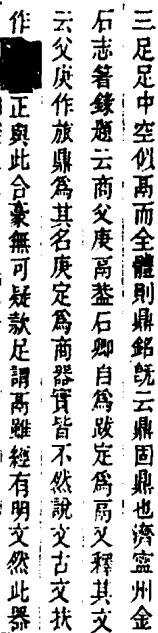 三足足中空似鬲而全體則鼎銘旣云鼎固鼎也濟寧州金
石志著錄題云商父庚鬲葢石卿自爲跋定爲鬲又釋其文
云父庚作旅鼎爲其名庚定爲商器實皆不然說文古文㧊
作正與此合豪無可疑款足謂鬲雖經有明文然此器